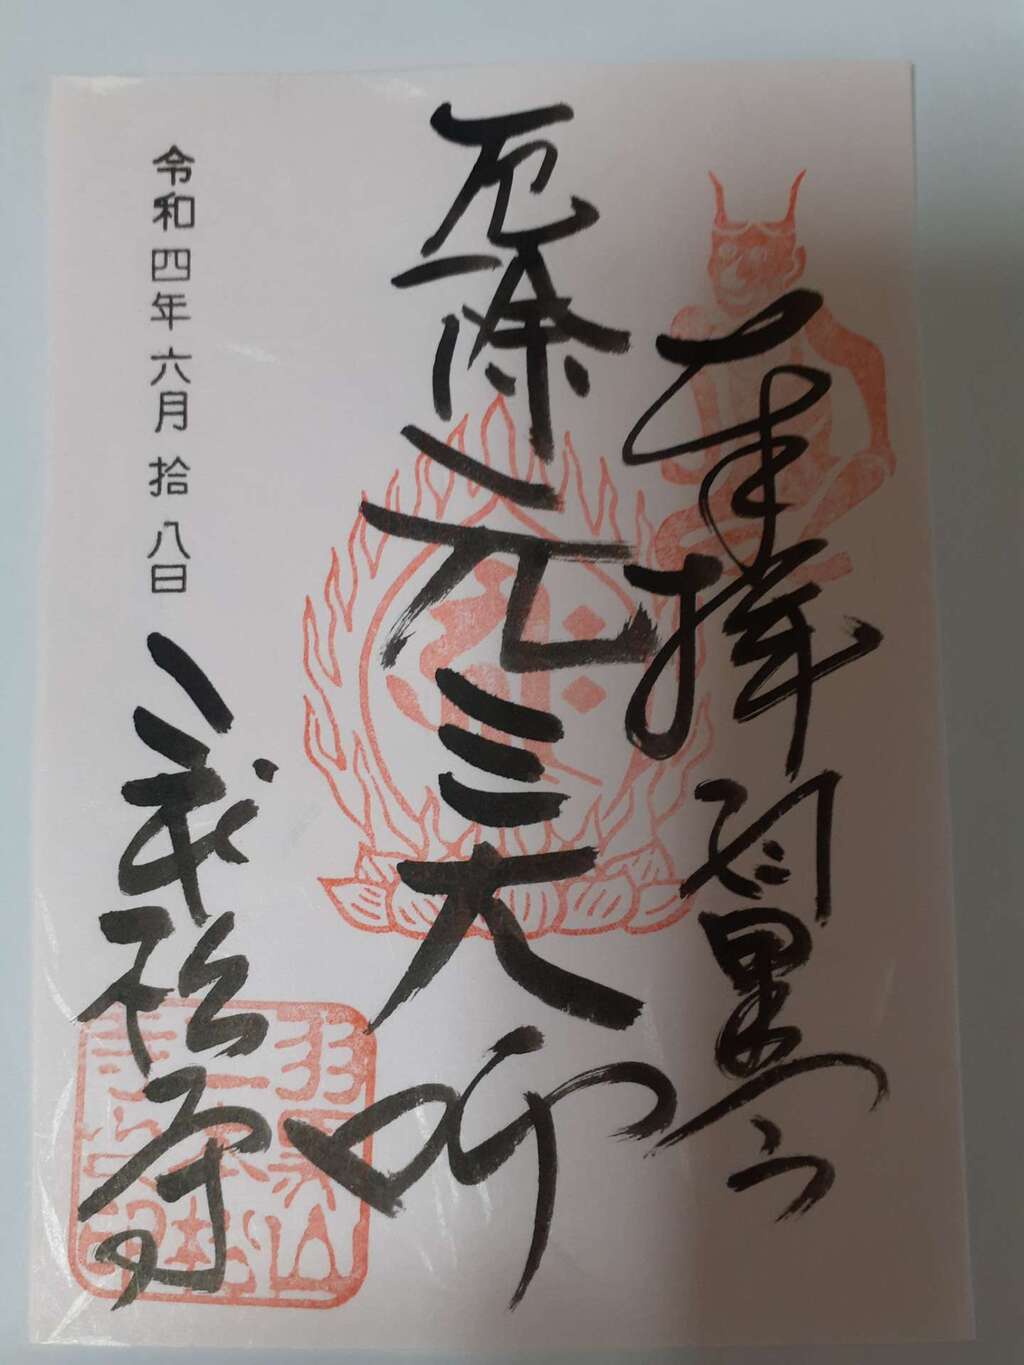 奉拝 羽黒山
厄除 元三大師
令和四年六月拾八日
寺